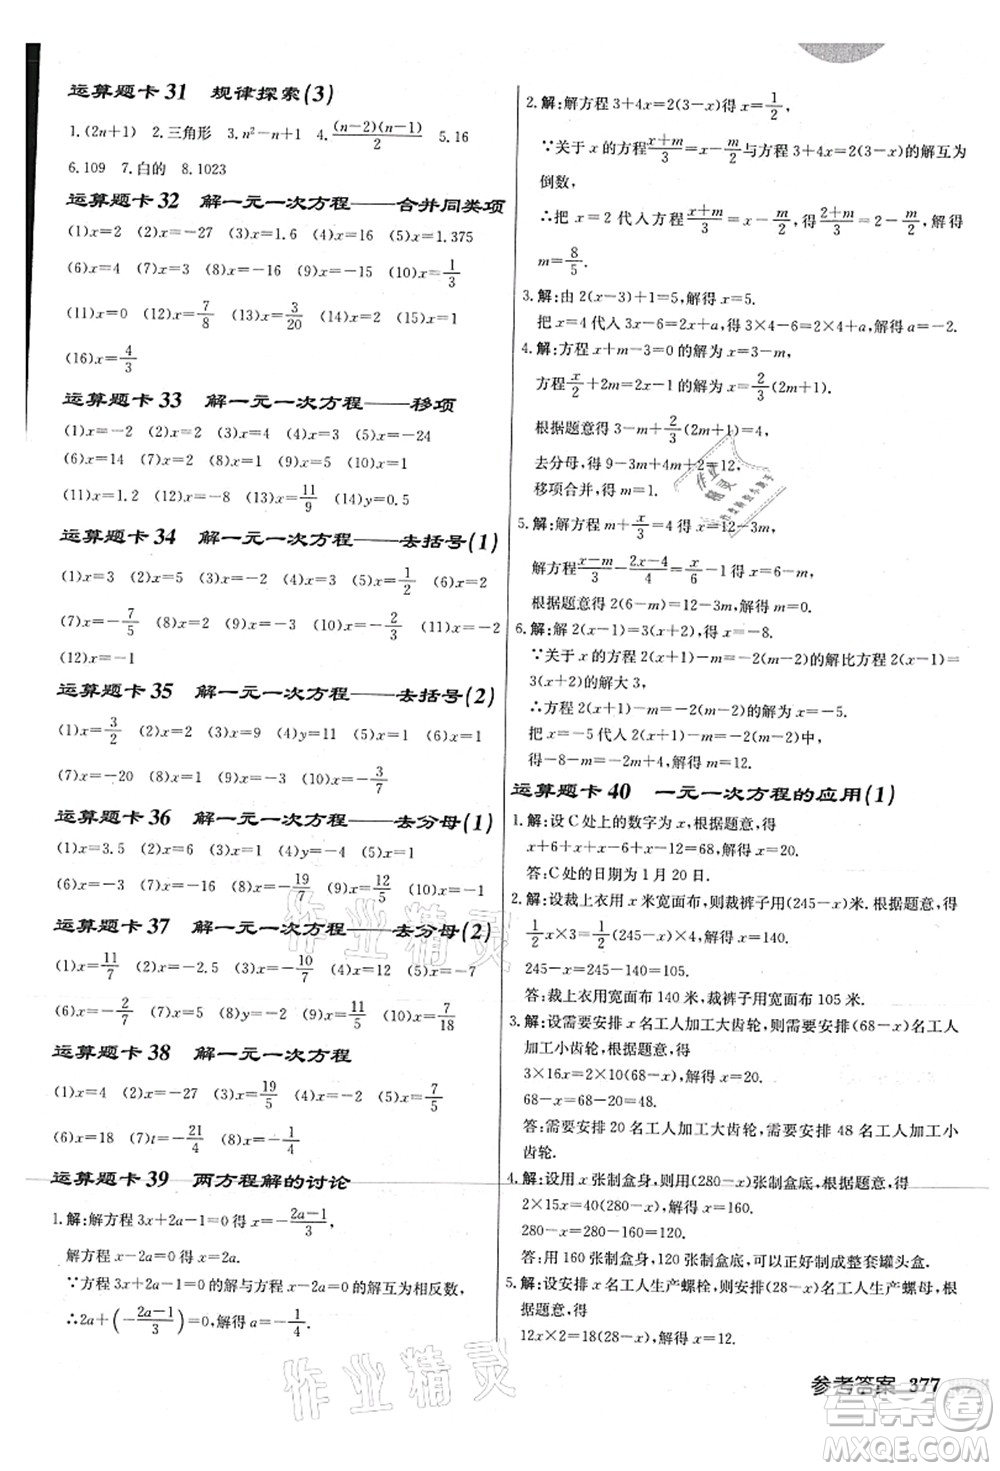 运算题卡 31 规律探索(3)
1.(2n+1) 2.三角形 3.n²-n+1 4.(n-2)(n-1)/2 5.16
6.109 7.白的 8.1023
运算题卡 32 解一元一次方程——合并同类项
(1)x=2 (2)x=-27 (3)x=1.6 (4)x=16 (5)x=1.375
(6)x=4 (7)x=4 (8)x=-16 (9)x=-15 (10)x=1/3
(11)x=0 (12)x=7/8 (13)x=3/20 (14)x=1 (15)x=-4
(16)x=4/3
运算题卡 33 解一元一次方程——移项
(1)x=-2 (2)x=2 (3)x=4 (4)x=5 (5)x=-24
(6)x=2 (7)x=5 (8)x=-1 (9)x=4 (10)x=1
(11)x=1.2 (12)x=-4 (13)x=11/9 (14)y=0.5
运算题卡 34 解一元一次方程——去括号(1)
(1)x=3 (2)x=5 (3)x=-2 (4)x=0 (5)x=1/2 (6)x=2
(7)x=-7/5 (8)x=0 (9)x=-3 (10)x=-2/3 (11)x=-2
(12)x=-1
运算题卡 35 解一元一次方程——去括号(2)
(1)x=3/2 (2)x=5 (3)x=9 (4)x=11 (5)x=4 (6)x=2
(7)x=-20 (8)x=10 (9)x=-4 (10)x=-3/7
运算题卡 36 解一元一次方程——去分母(1)
(1)x=3.5 (2)x=6 (3)x=2 (4)x=1 (5)x=4
(6)x=-3 (7)x=-1 (8)x=-19/7 (9)x=12/5 (10)x=-1
运算题卡 37 解一元一次方程——去分母(2)
(1)x=11/7 (2)x=-2.5 (3)x=-10/7 (4)x=2 (5)x=1
(6)x=-2/7 (7)x=7 (8)x=0 (9)x=11/5 (10)y=7/18
运算题卡 38 解一元一次方程
(1)x=4 (2)x=-27 (3)x=19/5 (4)x=2 (5)x=1
(6)x=18 (7)t=-21/4 (8)x=-1/4
运算题卡 39 两方程解的讨论
1.解:解方程 3x+2a-1=0 得 x=-(2a-1)/3,
解方程 x-2a=0 得 x=2a.
∵方程 3x+2a-1=0 的解与方程 x-2a=0 的解互为相反数,
∴2a+(-(2a-1)/3)=0,解得 a=-1/4.
2.解:解方程 3+4x=2(3-x)得 x=1/2,
∵关于 x 的方程(x+m)/3=x-m/2与方程 3+4x=2(3-x)的解互为
倒数,
∴把 x=2 代入方程(x+m)/3=x-m/2,得(2+m)/3=2-m/2,解得
m=8/5.
3.解:由 2(x-3)+1=5,解得 x=5.
把 x=4 代入 3x-6=2x+a,得 3×4-6=2×5+a,解得 a=-2.
4.解:方程 x+m-3=0 的解为 x=3-m,
方程x/2+2m=x-1 的解为 x=2/3(2m+1).
根据题意得 3-m+2/3(2m+1)=4,
去分母,得 9-3m+4m+2=12,
移项合并,得 m=1.
5.解:解方程 m+x/3=4,得 x=12-3m,
解方程(x-m)/3-(2x-4)/4=x/6-1 得 x=6-m.
根据题意得 2(6-m)=12-3m,解得 m=0.
6.解:解 2(x-1)=3(x+2),得 x=-8.
∵关于 x 的方程 2(x+1)-m=-2(m-2)的解比方程 2(x-1)=
3(x+2)的解大 3,
∴方程 2(x+1)-m=-2(m-2)的解为 x=-5.
把 x=-5 代入 2(x+1)-m=-2(m-2),
得-8-m=-2m+4,解得 m=12.
运算题卡 40 一元一次方程的应用(1)
1.解:设 C 处上的数字为 x,根据题意,得
x+6+x+x-6+x-1+x+1=68,解得 x=20.
答:C 处的日期为 1 月 20 日.
2.解:设裁上衣用 x 米宽面布,则裁裤子用(245-x)米.根据题意,得
1/2x×3=1/2(245-x)×4,解得 x=140.
245-x=245-140=105.
答:裁上衣用宽面布 140 米,裁裤子用宽面布 105 米.
3.解:设需要安排 x 名工人加工大齿轮,则需要安排(68-x)名工人
加工小齿轮,根据题意,得
3×16x=2×10(68-x),解得 x=20.
68-x=68-20=48.
答:需要安排 20 名工人加工大齿轮,安排 48 名工人加工小
齿轮.
4.解:设用 x 张制盒身,则用(280-x)张制盒底,根据题意,得
2×15x=40(280-x),解得 x=160.
280-x=280-160=120.
答:用 160 张制盒身,120 张制盒底,可以正好制成整套罐头盒.
5.解:设安排 x 名工人生产螺栓,则安排(28-x)名工人生产螺母,根
据题意,得
12x×2=18(28-x),解得 x=12.
参考答案 377
作业精灵
作业精灵
作业精灵
答案圈
MXQE.COM